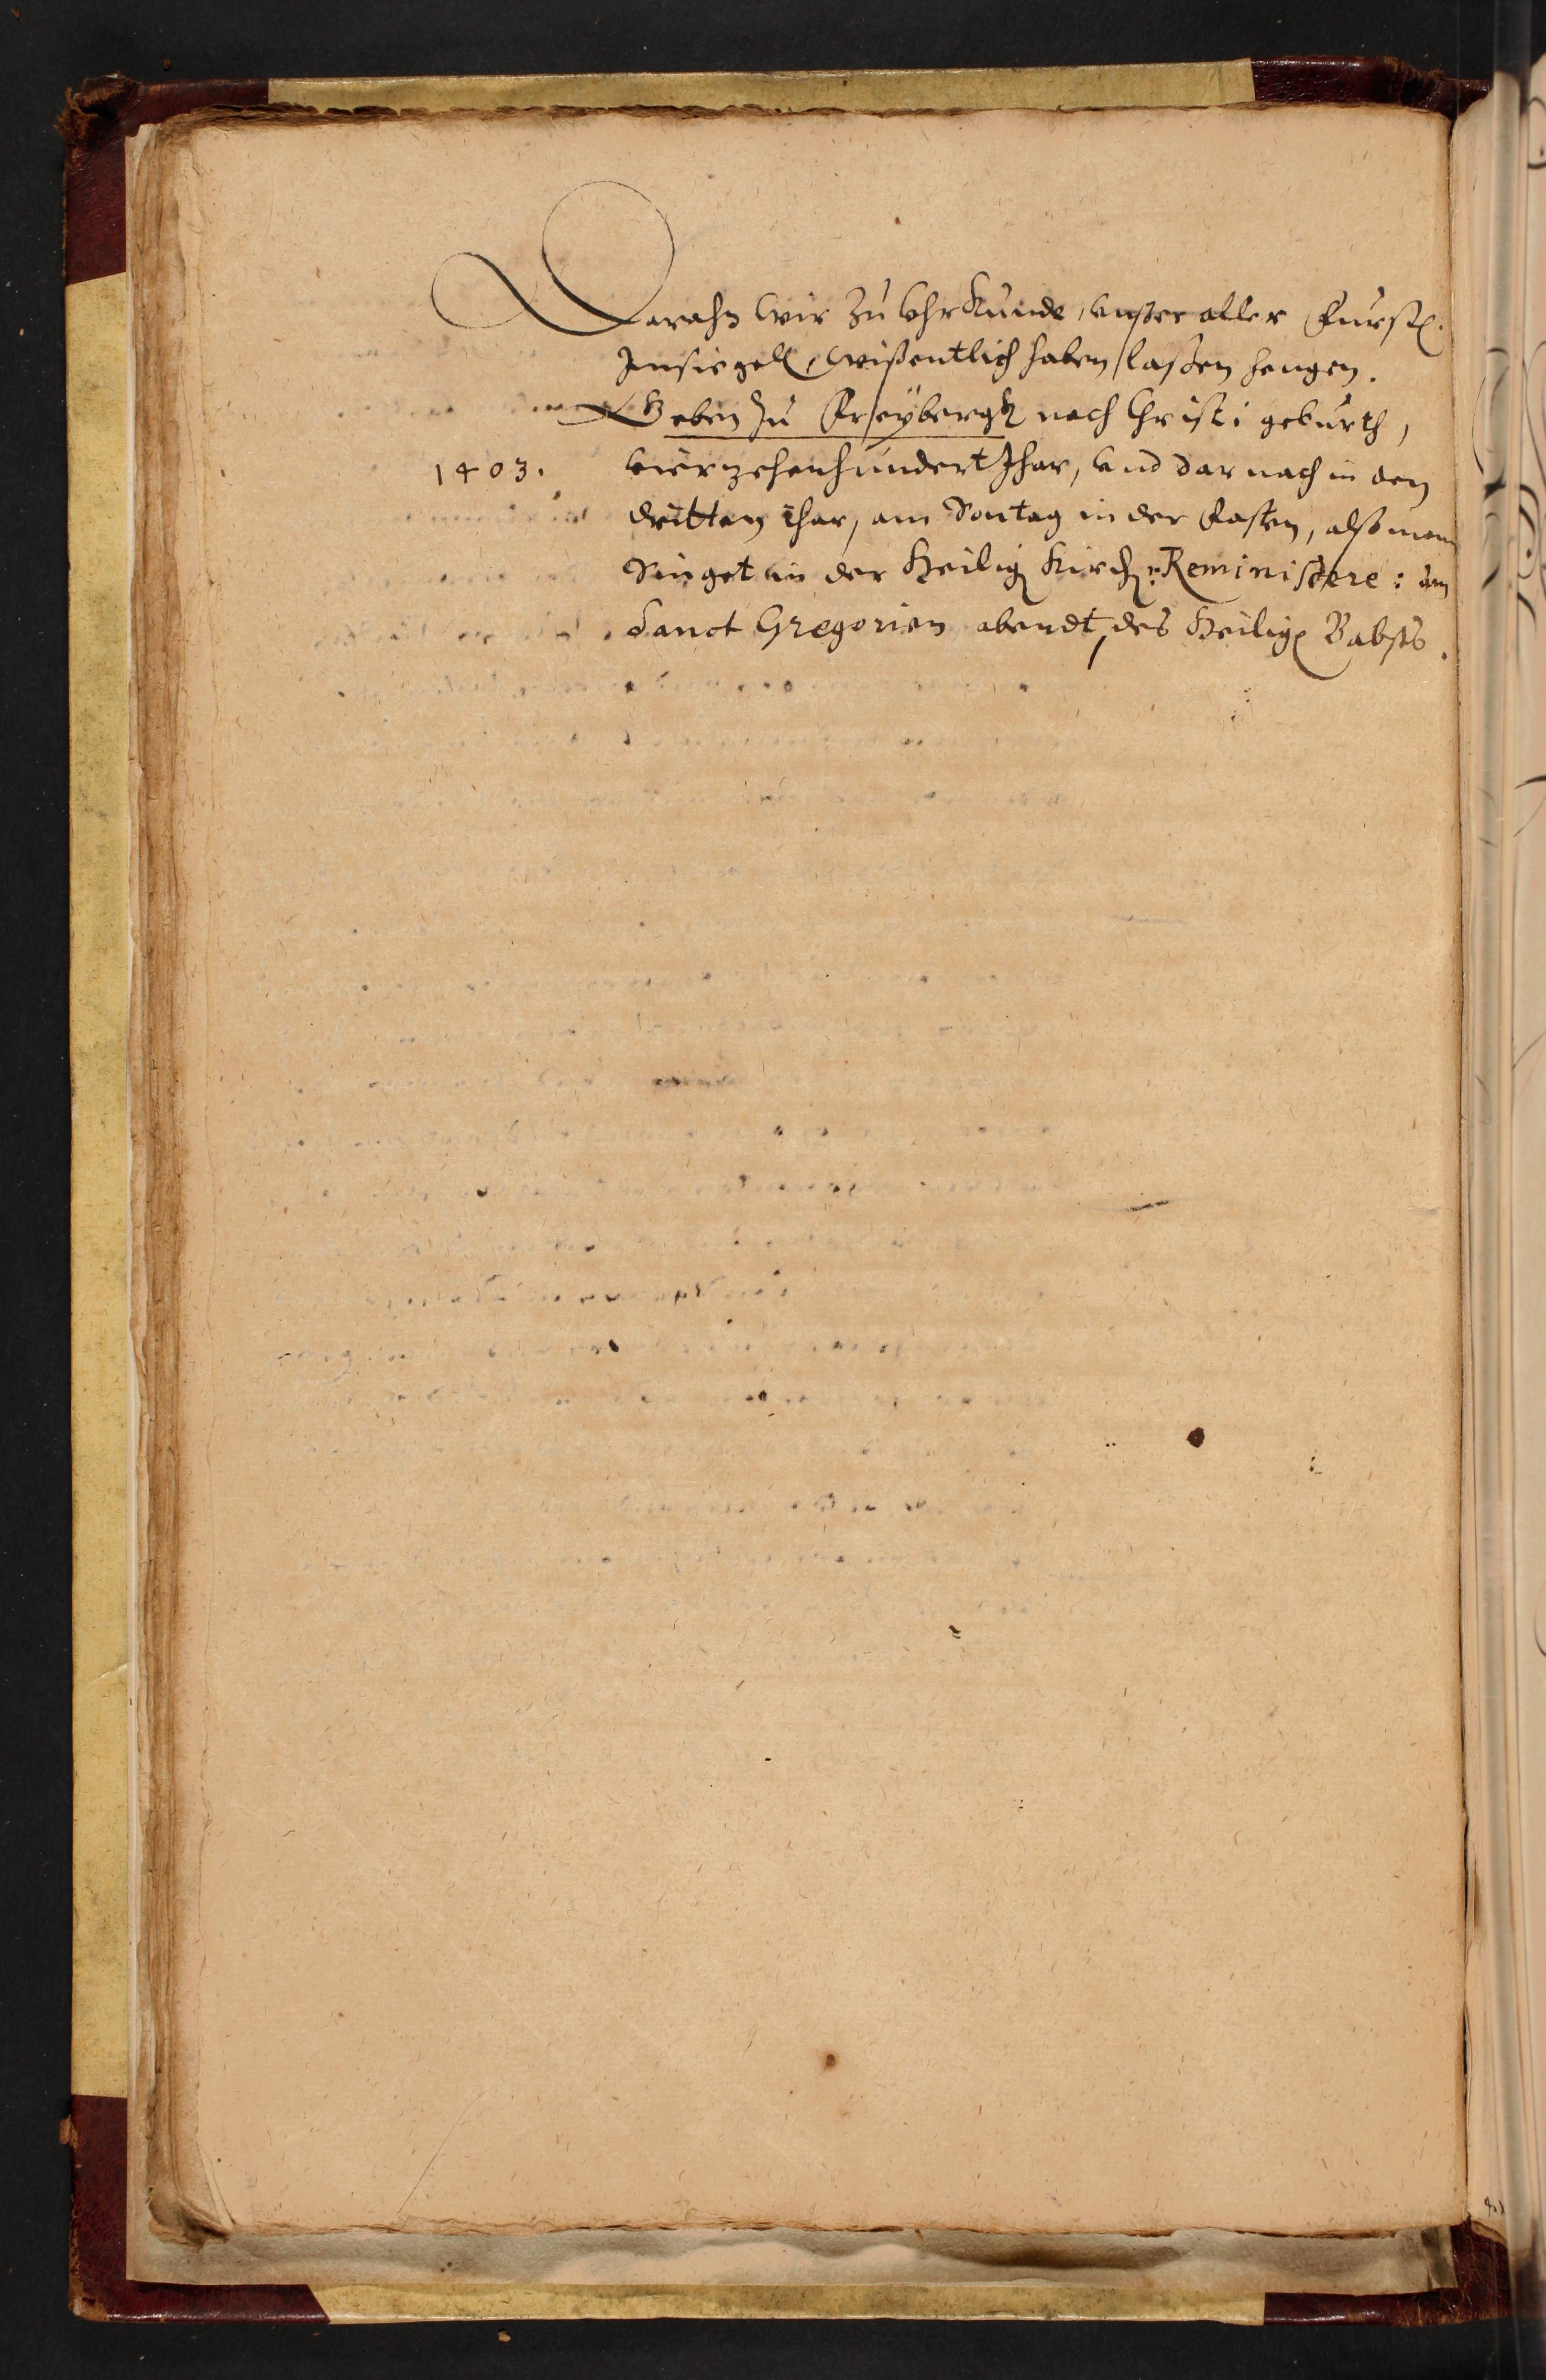 Darahn wir zu Vhrkunde, vnser aller Furstl.
Insiegell, wißentlich haben laßen hengen.
Geben zu Freybergk nach Christi geburth,
1403. vierzehenhundert Jhar, vnd darnach in den
dritten ihar, am Sontag in der Fasten, alß man
Singet in der Heilig Kirch: Reminiscere: am
Sanct Gregorien abendt, des Heilig Babsts.